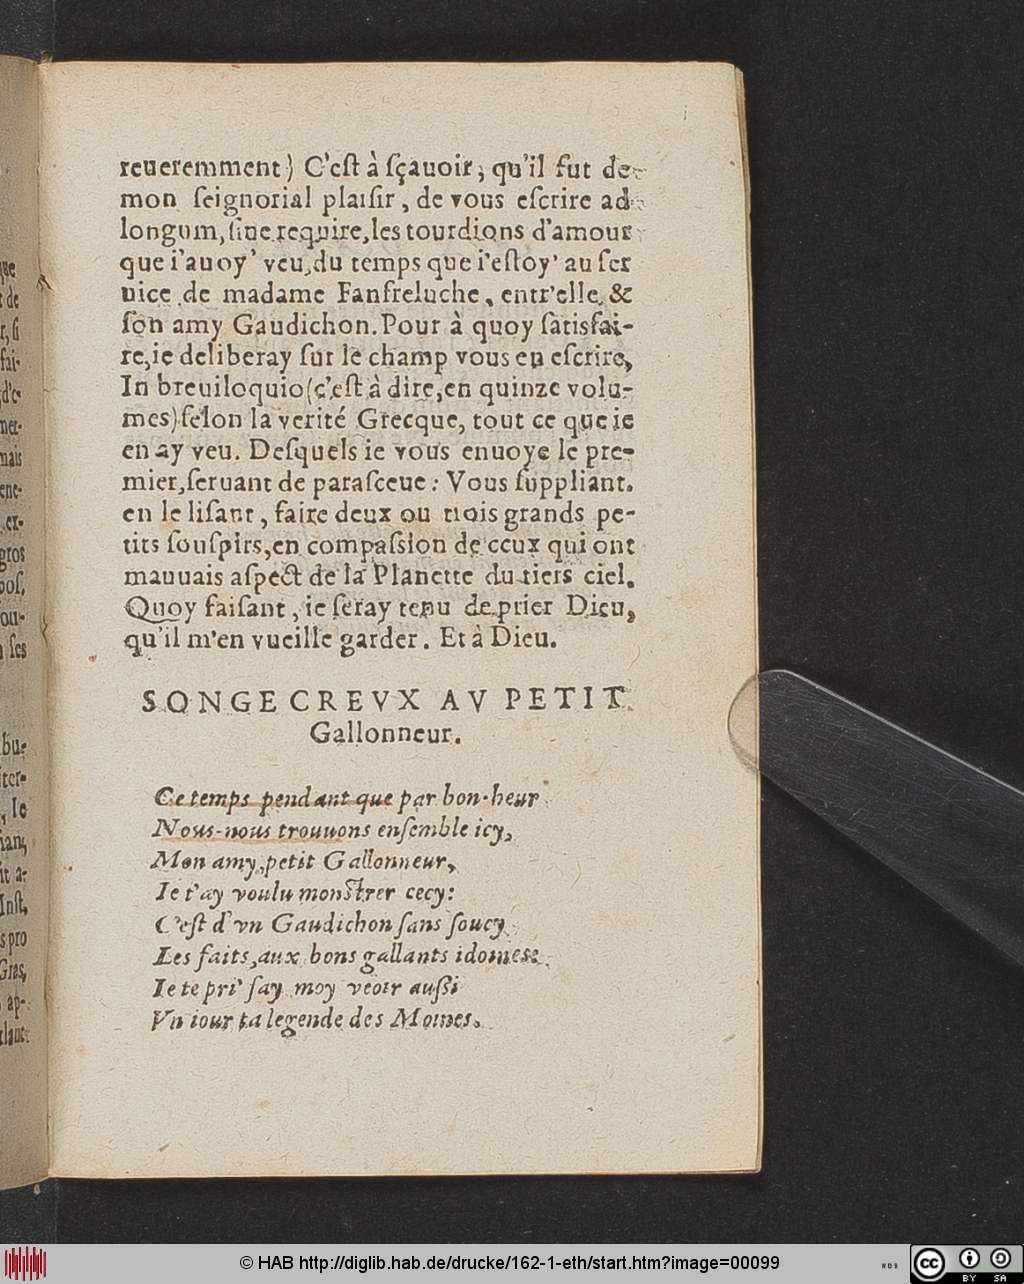 reueremment) C'eſt à ſçauoir, qu'il fut de
mon ſeignorial plaiſir, de vous eſcrire ad
longum, ſine require, les tourdions d'amour
que i'auoy' veu, du temps que i'eſtoy' au ſer
uice de madame Fanfreluche, entr'elle, &
ſon amy Gaudichon. Pour à quoy ſatisfai-
re, ie deliberay ſur le champ vous en eſcrire,
In breuiloquio (c'eſt à dire, en quinze volu-
mes) ſelon la verité Grecque, tout ce que ie
en ay veu. Deſquels ie vous enuoye le pre-
mier, ſeruant de paraſceue: Vous ſuppliant.
en le liſant, faire deux ou trois grands pe-
tits ſouſpirs, en compaſsion de ceux qui ont
mauuais aſpect de la Planette du tiers ciel.
Quoy faiſant, ie ſeray tenu de prier Dieu,
qu'il m'en vueille garder. Et à Dieu.
SONGECREVX AV PETIT
Gallonneur.
Ce temps pendant que par bon-heur
Nous-nous trouuons enſemble icy,
Mon amy, petit Gallonneur,
Ie t'ay voulu monſtrer cecy:
C'eſt d'vn Gaudichon ſans ſoucy
Les faits, aux bons gallants idoines:
Ie te pri' fay moy veoir auſsi
Vn iour ta legende des Moines.
que
t de
r, ſi
fai-
d'e-
mer-
mais
ene-
er-
gros
pos,
ou-
ſes
bu-
ſter-
, Ie
ian,
it a-
Inſt,
s pro
Gras,
ap-
© HAB http://diglib.hab.de/drucke/162-1-eth/start.htm?image=00099
cc BY SA